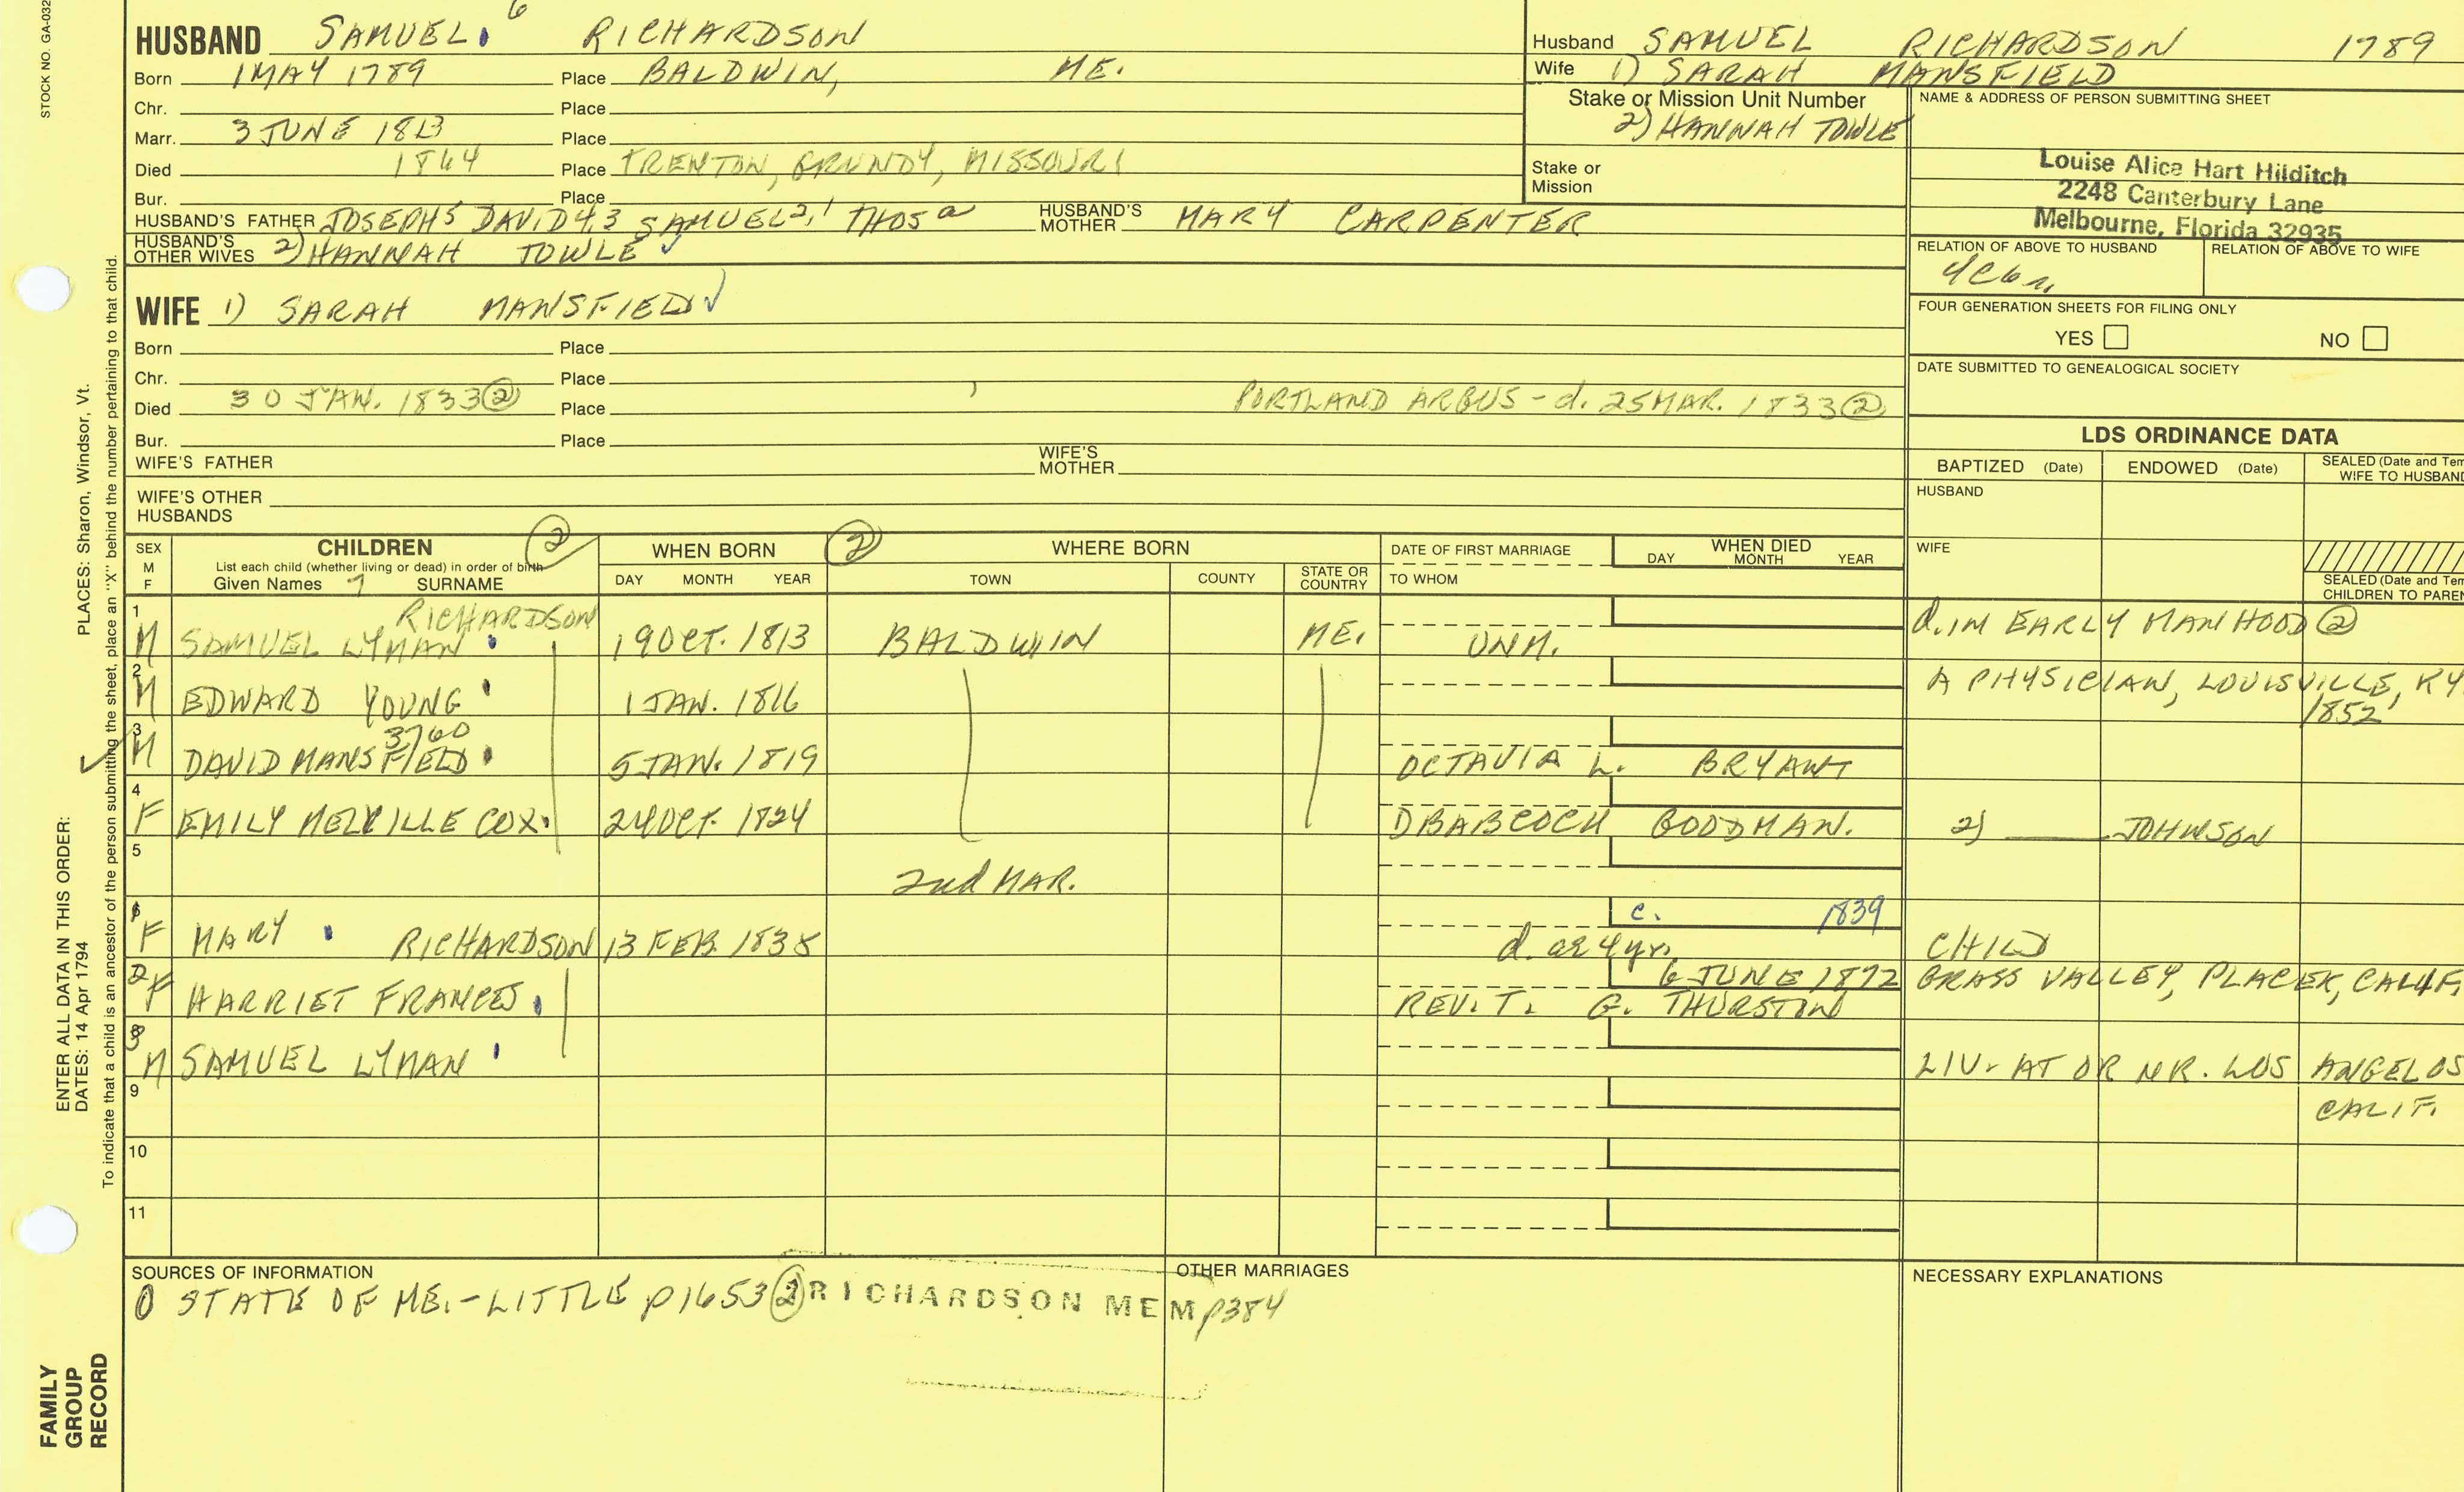 STOCK NO. GA-032
6
HUSBAND SAMUEL RICHARDSON
Born 1 MAY 1789 Place BALDWIN, ME.
Chr. Place
Marr. 3 JUNE 1813 Place
Died 1864 Place TRENTON, GRUNDY, MISSOURI
Bur. Place
HUSBAND'S FATHER JOSEPH5 DAVID4,3 SAMUEL2,1 THOSa HUSBAND'S MOTHER MARY CARPENTER
HUSBAND'S OTHER WIVES 2) HANNAH TOWLE ✓
WIFE 1) SARAH MANSFIELD ✓
Born Place
Chr. Place
Died 30 JAN. 1833 ② Place , PORTLAND ARGUS - d. 25 MAR. 1833 ②
Bur. Place
WIFE'S FATHER WIFE'S MOTHER
WIFE'S OTHER HUSBANDS
Husband SAMUEL RICHARDSON 1789
Wife 1) SARAH MANSFIELD
Stake or Mission Unit Number
2) HANNAH TOWLE
Stake or Mission
NAME & ADDRESS OF PERSON SUBMITTING SHEET
Louise Alice Hart Hilditch
2248 Canterbury Lane
Melbourne, Florida 32935
RELATION OF ABOVE TO HUSBAND RELATION OF ABOVE TO WIFE
FOUR GENERATION SHEETS FOR FILING ONLY
YES NO
DATE SUBMITTED TO GENEALOGICAL SOCIETY
LDS ORDINANCE DATA
BAPTIZED (Date) ENDOWED (Date) SEALED (Date and Tem
WIFE TO HUSBAND
HUSBAND
WIFE
SEALED (Date and Tem
CHILDREN TO PAREN
SEX M F CHILDREN ② WHEN BORN ② WHERE BORN DATE OF FIRST MARRIAGE WHEN DIED
List each child (whether living or dead) in order of birth
Given Names 7 SURNAME DAY MONTH YEAR TOWN COUNTY STATE OR COUNTRY TO WHOM DAY MONTH YEAR
RICHARDSON
1 M SAMUEL LYMAN 19 OCT. 1813 BALDWIN ME. UNM. d. IM EARLY MANHOOD ②
2 M EDWARD YOUNG 1 JAN. 1816 A PHYSICIAN, LOUISVILLE, KY
1852
3760
3 M DAVID MANSFIELD 5 JAN. 1819 OCTAVIA L. BRYANT
4 F EMILY MELVILLE COX 24 OCT. 1824 D BABCOCK GOODMAN. 2) ____ JOHNSON
5
2nd MAR.
c. 1839
6 F MARY RICHARDSON 13 FEB. 1835 d. ae 4 yr. CHILD
6 JUNE 1872 GRASS VALLEY, PLACER, CALIF.
F HARRIET FRANCES REV. T. G. THURSTON
8 M SAMUEL LYMAN LIV. AT OR NR. LOS ANGELOS
CALIF.
9
10
11
SOURCES OF INFORMATION
① STATE OF ME. - LITTLE p1653 ② RICHARDSON MEM p384
OTHER MARRIAGES
NECESSARY EXPLANATIONS
PLACES: Sharon, Windsor, Vt.
To indicate that a child is an ancestor of the person submitting the sheet, place an "X" behind the number pertaining to that child.
ENTER ALL DATA IN THIS ORDER:
DATES: 14 Apr 1794
FAMILY
GROUP
RECORD